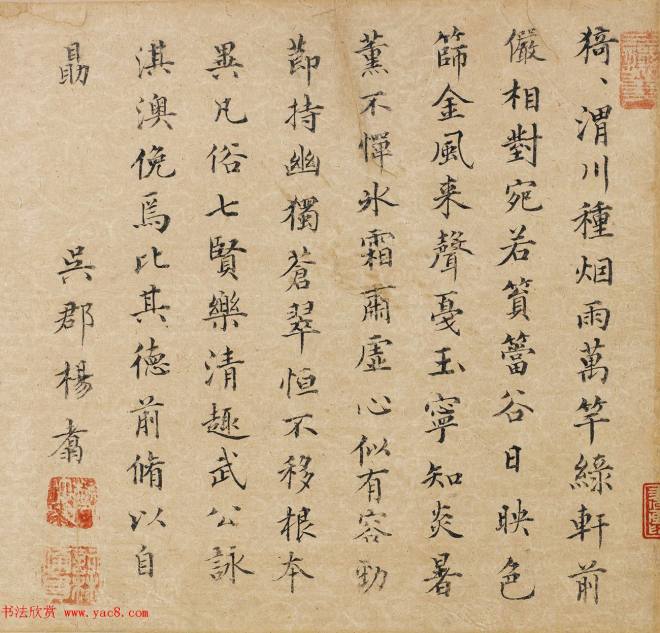 猗〻渭川種烟雨萬竿綠軒前
儼相對宛若篔簹谷日映色
篩金風来聲戞玉寧知炎暑
薰不憚冰霜肅虛心似有容勁
節持幽獨蒼翠恒不移根本
異凡俗七賢樂清趣武公詠
淇澳俛焉比其德前脩以自
勗
吳郡楊翥
书法欣赏 www.yac8.com